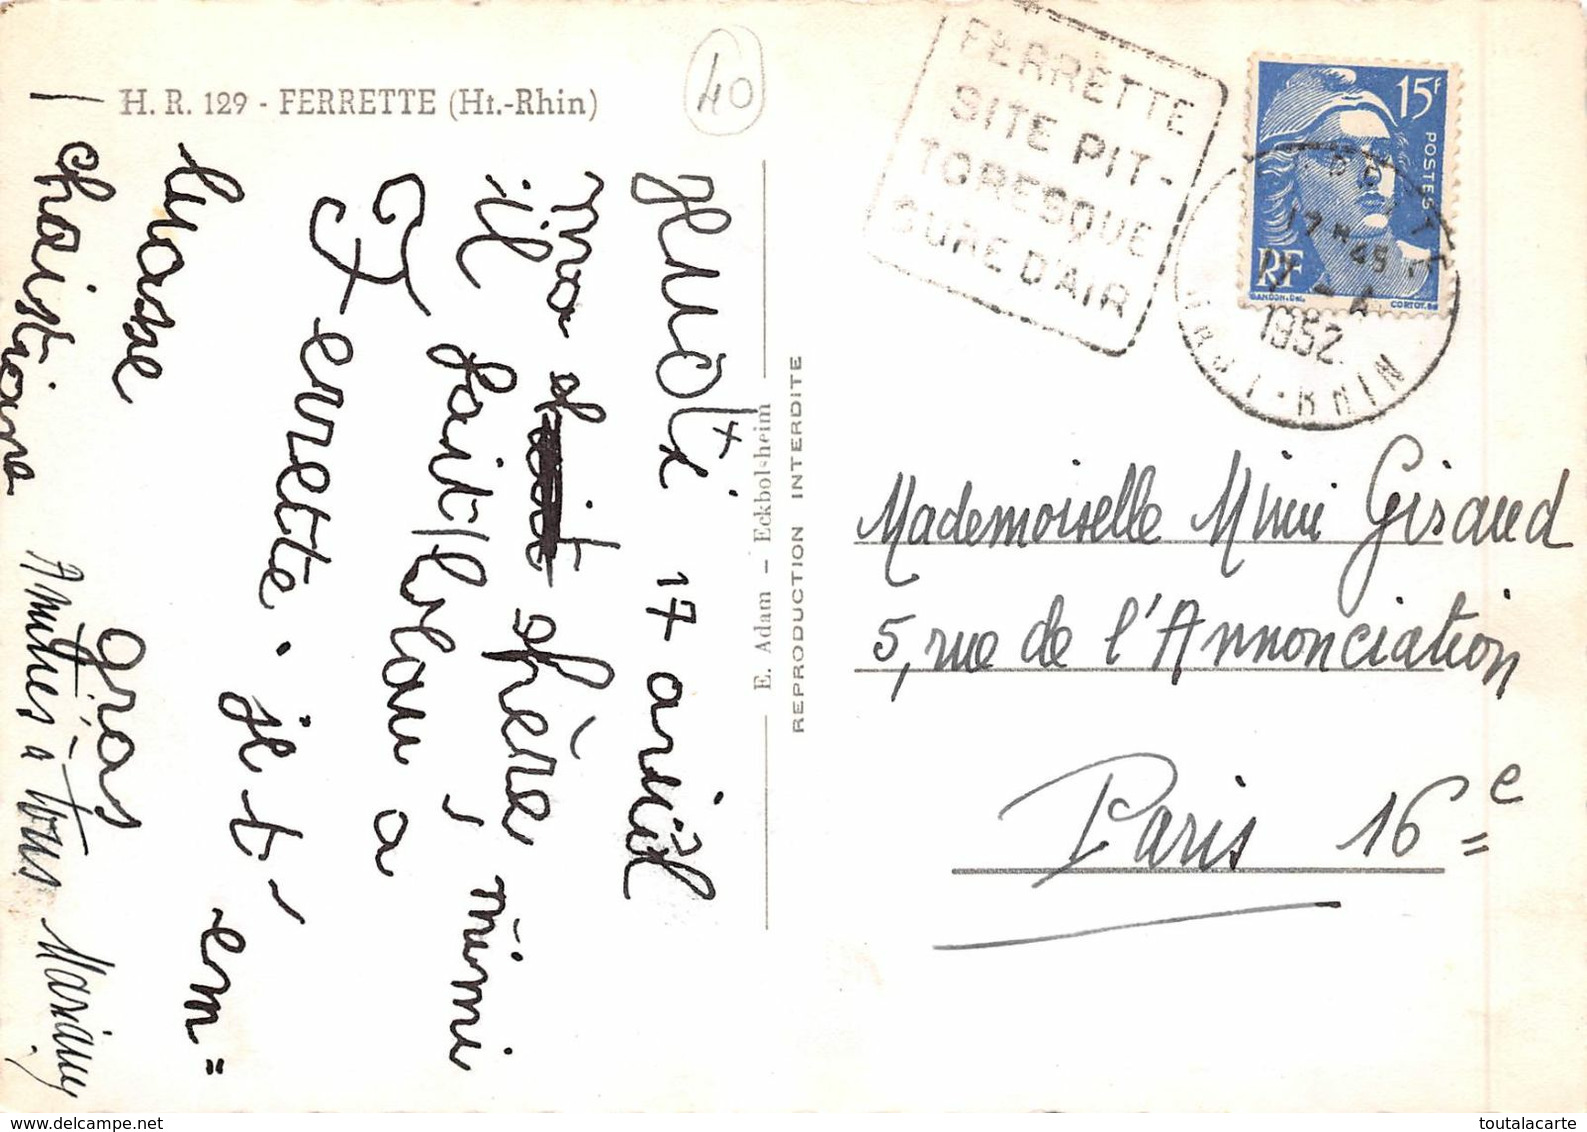 H. R. 129 - FERRETTE (Ht.-Rhin)
40
jeudi 17 avril
ma ch
chère mimi
il fait beau a
Ferrette. je t'em=
brasse gros
christiane
Amitiés à tous
E. Adam — Eckbolsheim
REPRODUCTION INTERDITE
FERRETTE
SITE PIT-
TORESQUE
CURE D'AIR
15F
POSTES
RF
GANDON.Del.
CORTOT.Sc
17 H 45
17 - 4
1952
HAUT-RHIN
Mademoiselle Mimi Giraud
5, rue de l'Annonciation
Paris 16e
toutalacarte